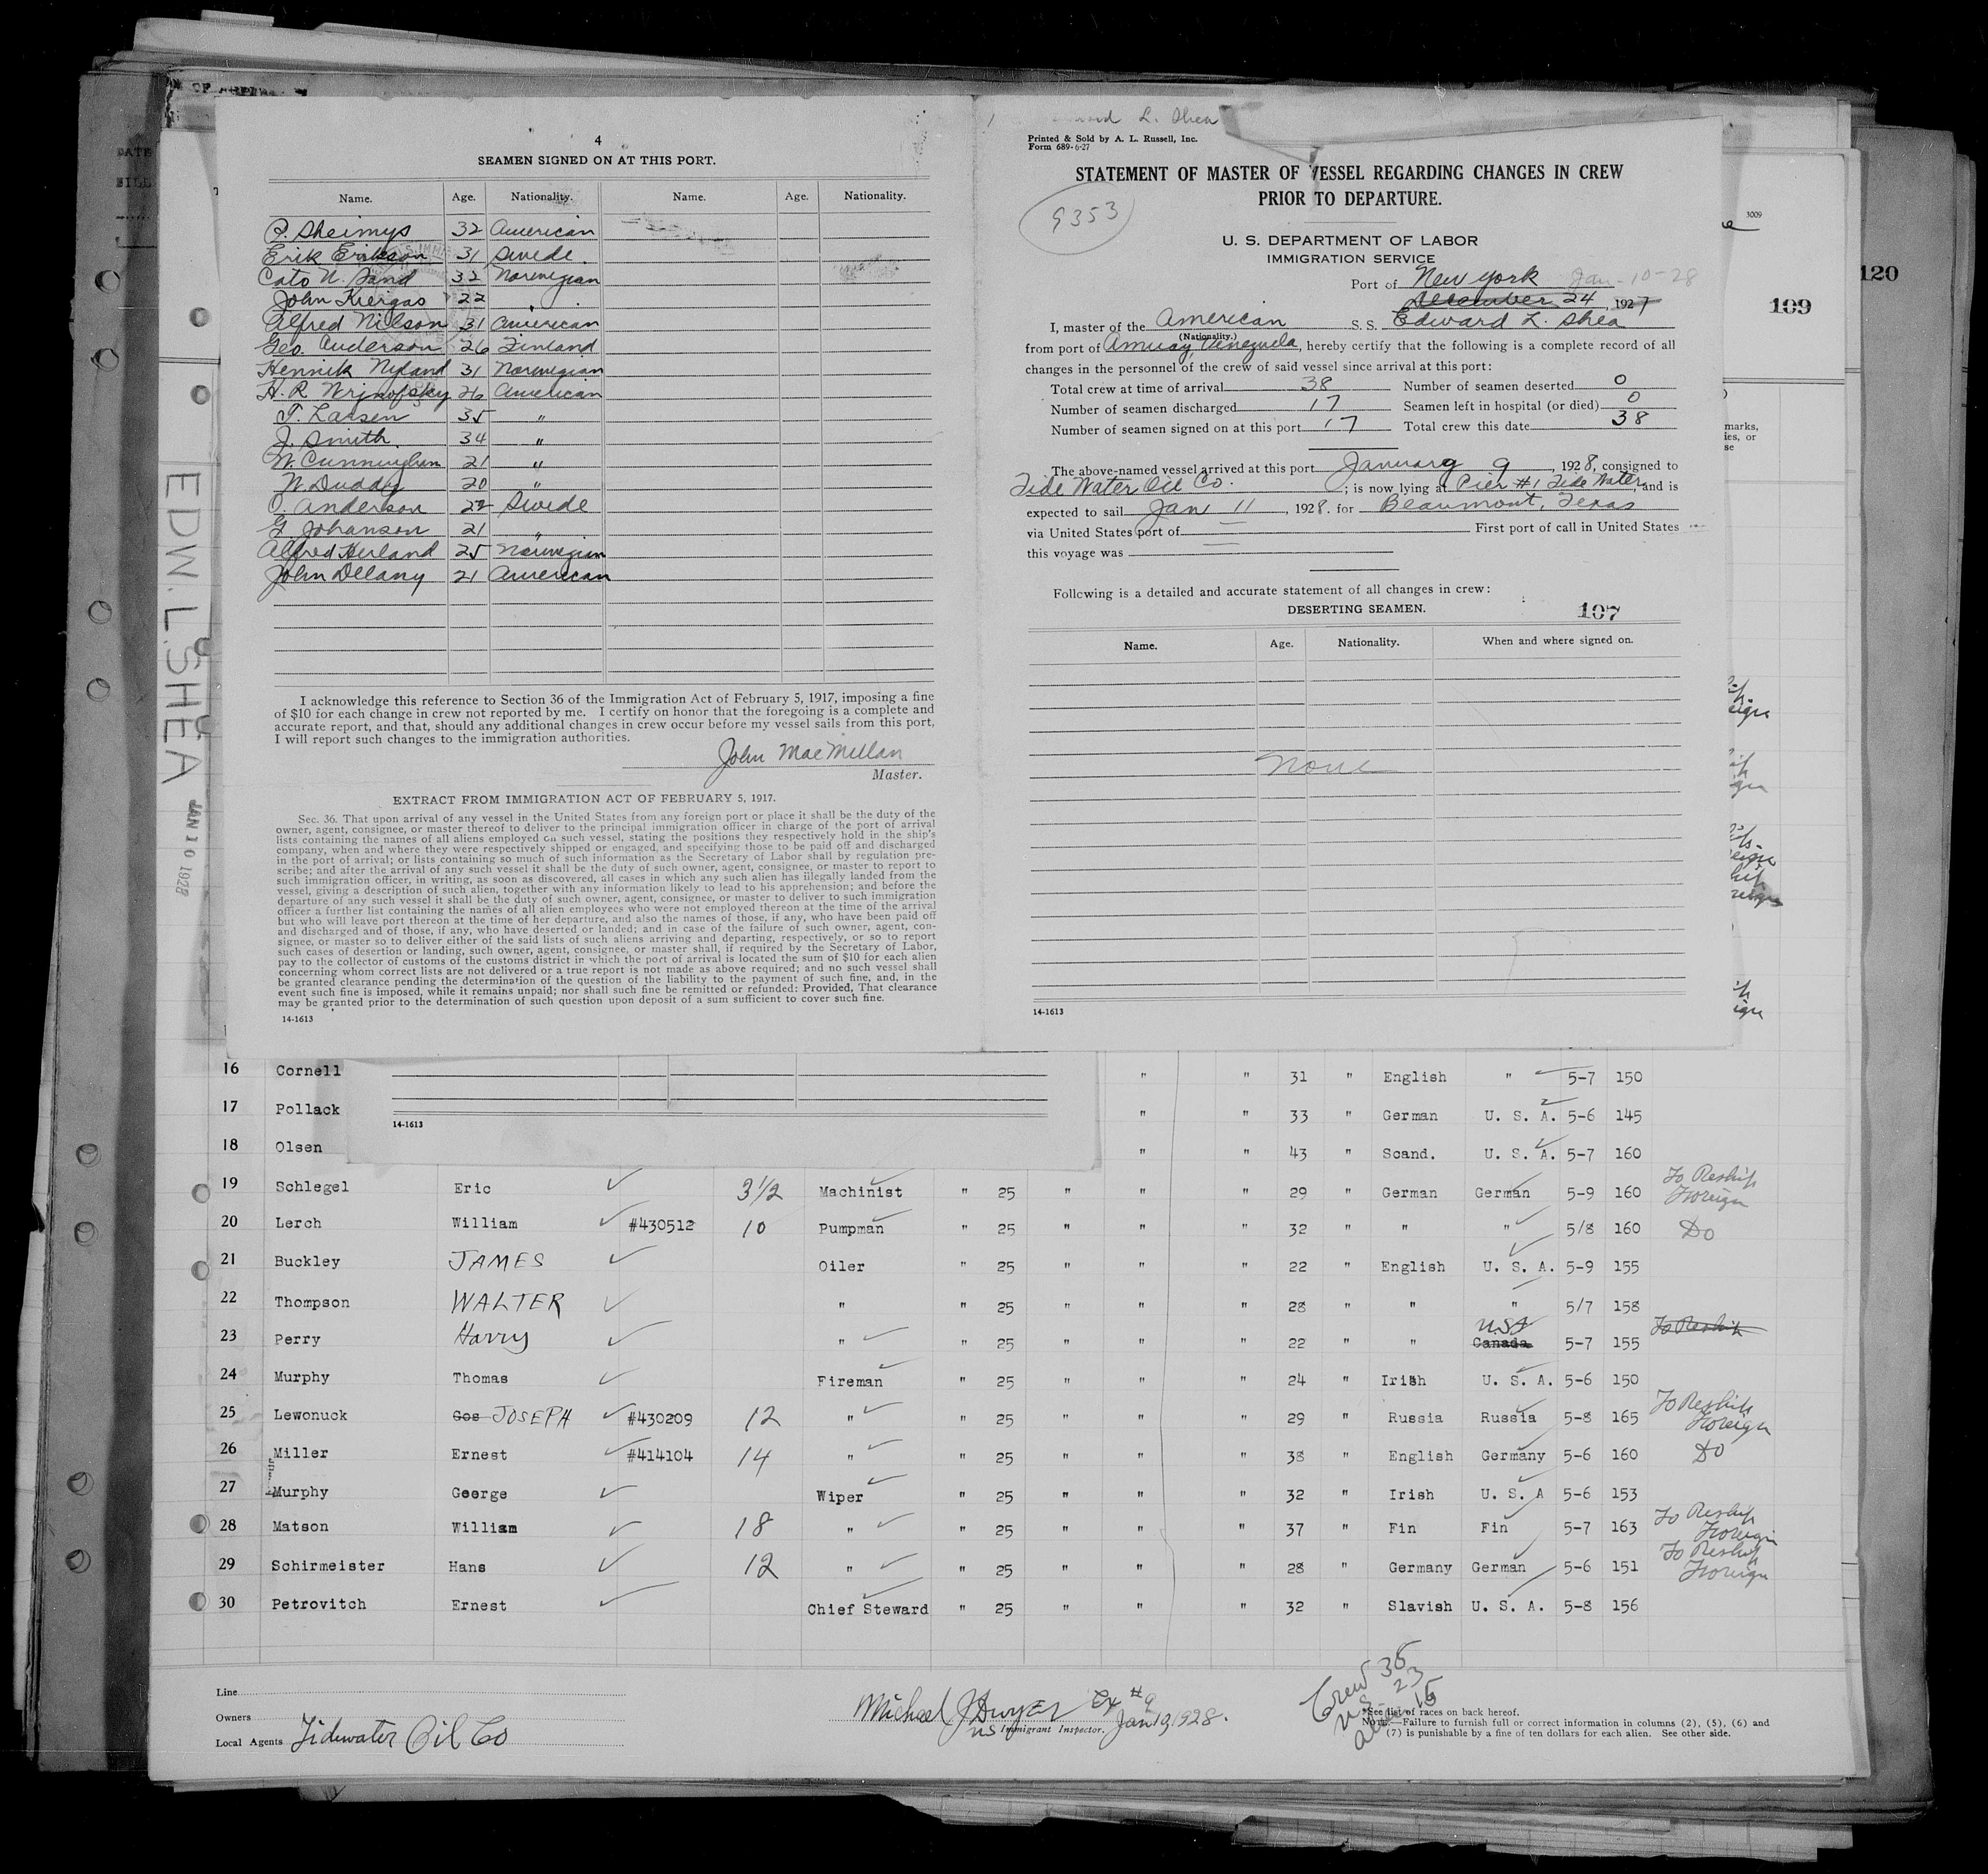 4
SEAMEN SIGNED ON AT THIS PORT.
Name. Age. Nationality. Name. Age. Nationality.
P. Sheimys 32 American
Erik Erikson 31 Swede.
Cato N. Sand 32 Norwegian
John Kiergas 22 "
Alfred Nilson 31 American
Geo. Anderson 26 Finland
Hennik Nyland 31 Norwegian
H. R. Wrjnofsky 26 American
T. Larsen 35 "
J. Smith. 34 "
W. Cunningham 21 "
W. Duddy 20 "
O. Anderson 22 Swede
G. Johanson 21 "
Alfred Herland 25 Norwegian
John Delany 21 American
I acknowledge this reference to Section 36 of the Immigration Act of February 5, 1917, imposing a fine
of $10 for each change in crew not reported by me. I certify on honor that the foregoing is a complete and
accurate report, and that, should any additional changes in crew occur before my vessel sails from this port,
I will report such changes to the immigration authorities.
John MacMillan
Master.
EXTRACT FROM IMMIGRATION ACT OF FEBRUARY 5, 1917.
Sec. 36. That upon arrival of any vessel in the United States from any foreign port or place it shall be the duty of the
owner, agent, consignee, or master thereof to deliver to the principal immigration officer in charge of the port of arrival
lists containing the names of all aliens employed on such vessel, stating the positions they respectively hold in the ship's
company, when and where they were respectively shipped or engaged, and specifying those to be paid off and discharged
in the port of arrival; or lists containing so much of such information as the Secretary of Labor shall by regulation pre-
scribe; and after the arrival of any such vessel it shall be the duty of such owner, agent, consignee, or master to report to
such immigration officer, in writing, as soon as discovered, all cases in which any such alien has illegally landed from the
vessel, giving a description of such alien, together with any information likely to lead to his apprehension; and before the
departure of any such vessel it shall be the duty of such owner, agent, consignee, or master to deliver to such immigration
officer a further list containing the names of all alien employees who were not employed thereon at the time of the arrival
but who will leave port thereon at the time of her departure, and also the names of those, if any, who have been paid off
and discharged and of those, if any, who have deserted or landed; and in case of the failure of such owner, agent, con-
signee, or master so to deliver either of the said lists of such aliens arriving and departing, respectively, or so to report
such cases of desertion or landing, such owner, agent, consignee, or master shall, if required by the Secretary of Labor,
pay to the collector of customs of the customs district in which the port of arrival is located the sum of $10 for each alien
concerning whom correct lists are not delivered or a true report is not made as above required; and no such vessel shall
be granted clearance pending the determination of the question of the liability to the payment of such fine, and, in the
event such fine is imposed, while it remains unpaid; nor shall such fine be remitted or refunded: Provided, That clearance
may be granted prior to the determination of such question upon deposit of a sum sufficient to cover such fine.
14-1613
EDW. L. SHEA
JAN 10 1928
L. Shea
Printed & Sold by A. L. Russell, Inc.
Form 689-6-27
STATEMENT OF MASTER OF VESSEL REGARDING CHANGES IN CREW
PRIOR TO DEPARTURE.
9353
U. S. DEPARTMENT OF LABOR
IMMIGRATION SERVICE
Port of New York Jan-10-28
December 24, 1927
I, master of the American S. S. Edward L. Shea
(Nationality.)
from port of Amuay, Venezuela, hereby certify that the following is a complete record of all
changes in the personnel of the crew of said vessel since arrival at this port:
Total crew at time of arrival 38 Number of seamen deserted 0
Number of seamen discharged 17 Seamen left in hospital (or died) 0
Number of seamen signed on at this port 17 Total crew this date 38
The above-named vessel arrived at this port January 9, 1928, consigned to
Tide Water Oil Co.; is now lying at Pier #1 Tide Water, and is
expected to sail Jan 11, 1928. for Beaumont, Texas
via United States port of First port of call in United States
this voyage was
Following is a detailed and accurate statement of all changes in crew:
DESERTING SEAMEN. 107
Name. Age. Nationality. When and where signed on.
None
14-1613
3009
109
120
16 Cornell " " 31 " English " 5-7 150
17 Pollack " " 33 " German U. S. A. 5-6 145
14-1613
18 Olsen " " 43 " Scand. U. S. A. 5-7 160
19 Schlegel Eric 3½ Machinist " 25 " " " 29 " German German 5-9 160 To Reship Foreign
20 Lerch William #430512 10 Pumpman " 25 " " " 32 " " " 5/8 160 Do
21 Buckley JAMES Oiler " 25 " " " 22 " English U. S. A. 5-9 155
22 Thompson WALTER " " 25 " " " 28 " " " 5/7 158
23 Perry Harry " " 25 " " " 22 " " USA Canada 5-7 155 To Reship
24 Murphy Thomas Fireman " 25 " " " 24 " Irish U. S. A. 5-6 150
25 Lewonuck Gos JOSEPH #430209 12 " " 25 " " " 29 " Russia Russia 5-8 165 To Reship Foreign
26 Miller Ernest #414104 14 " " 25 " " " 38 " English Germany 5-6 160 Do
27 Murphy George Wiper " 25 " " " 32 " Irish U. S. A 5-6 153
28 Matson William 18 " " 25 " " " 37 " Fin Fin 5-7 163 To Reship Foreign
29 Schirmeister Hans 12 " " 25 " " " 28 " Germany German 5-6 151 To Reship Foreign
30 Petrovitch Ernest Chief Steward " 25 " " " 32 " Slavish U. S. A. 5-8 156
Crew 38
US 23
Aliens 15
Line
Owners
Local Agents Tidewater Oil Co
Michael J Dwyer Ex #9
US Immigrant Inspector. Jan 10, 1928.
*See list of races on back hereof.
Note.—Failure to furnish full or correct information in columns (2), (5), (6) and
(7) is punishable by a fine of ten dollars for each alien. See other side.